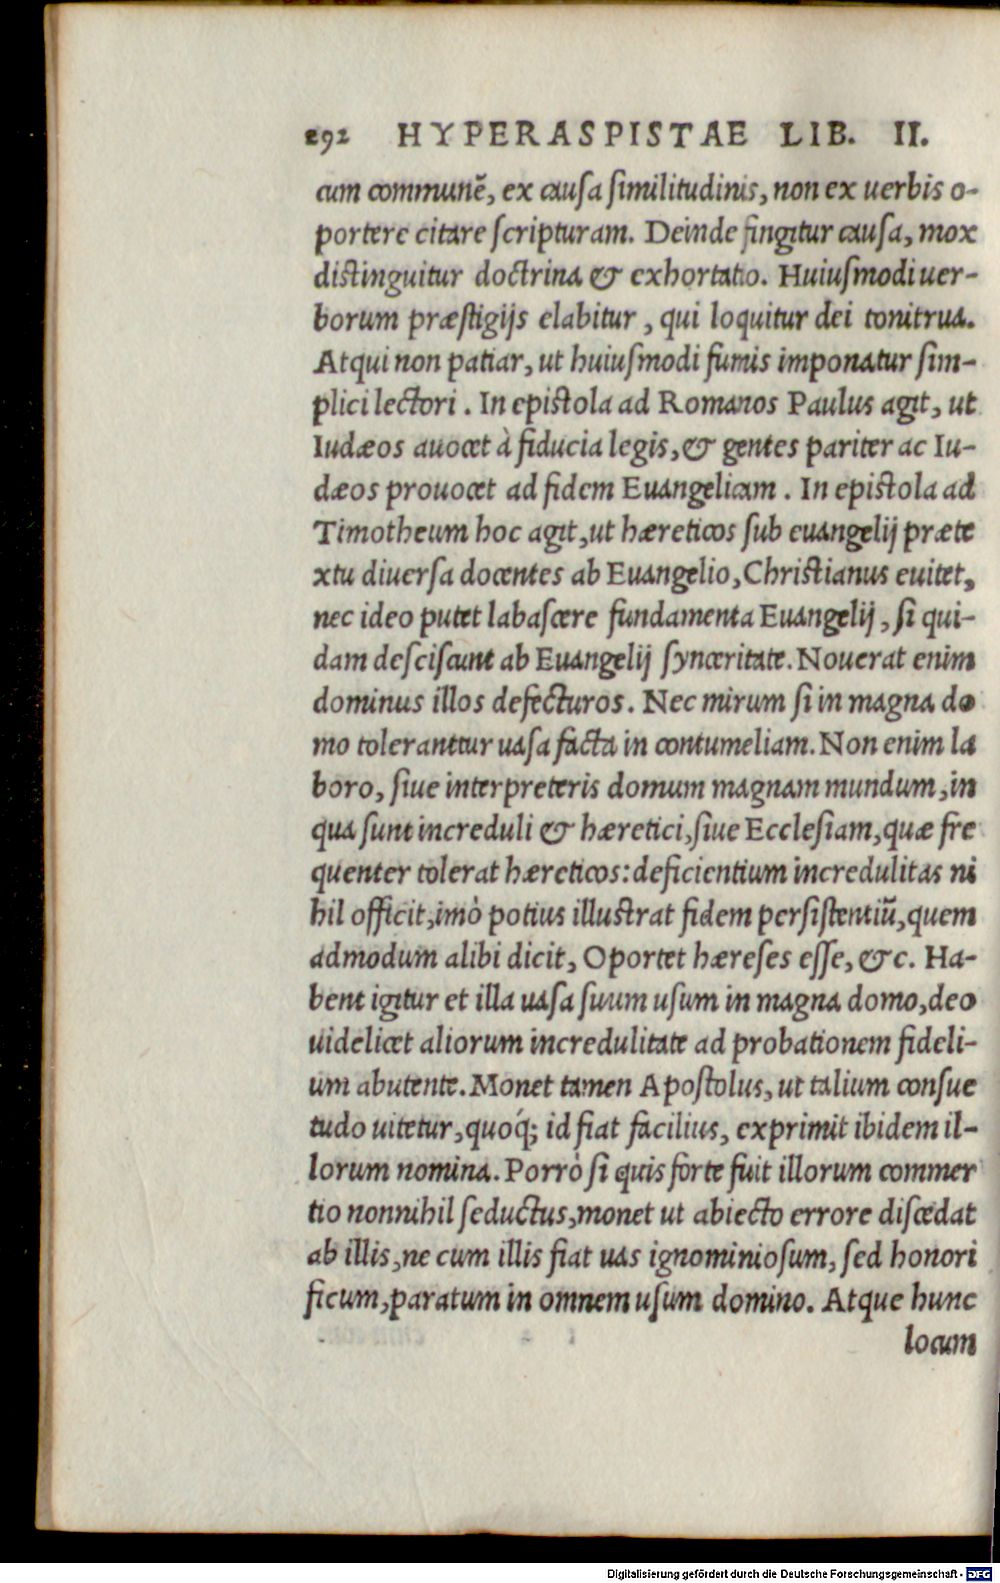 292 HYPERASPISTAE LIB. II.
cum communē, ex causa similitudinis, non ex uerbis o-
portere citare scripturam. Deinde fingitur causa, mox
distinguitur doctrina & exhortatio. Huiusmodi uer-
borum præstigijs elabitur, qui loquitur dei tonitrua.
Atqui non patiar, ut huiusmodi fumis imponatur sim-
plici lectori. In epistola ad Romanos Paulus agit, ut
Iudæos auocet à fiducia legis, & gentes pariter ac Iu-
dæos prouocet ad fidem Euangelicam. In epistola ad
Timotheum hoc agit, ut hæreticos sub euangelij præte
xtu diuersa docentes ab Euangelio, Christianus euitet,
nec ideo putet labascere fundamenta Euangelij, si qui-
dam desciscunt ab Euangelij synceritate. Nouerat enim
dominus illos defecturos. Nec mirum si in magna do
mo toleranttur uasa facta in contumeliam. Non enim la
boro, siue interpreteris domum magnam mundum, in
qua sunt increduli & hæretici, siue Ecclesiam, quæ fre
quenter tolerat hæreticos: deficientium incredulitas ni
hil officit, imò potius illustrat fidem persistentiū, quem
admodum alibi dicit, Oportet hæreses esse, &c. Ha-
bent igitur et illa uasa suum usum in magna domo, deo
uidelicet aliorum incredulitate ad probationem fideli-
um abutente. Monet tamen Apostolus, ut talium consue
tudo uitetur, quoq́; id fiat facilius, exprimit ibidem il-
lorum nomina. Porrò si quis forte fuit illorum commer
tio nonnihil seductus, monet ut abiecto errore discedat
ab illis, ne cum illis fiat uas ignominiosum, sed honori
ficum, paratum in omnem usum domino. Atque hunc
locum
Digitalisierung gefördert durch die Deutsche Forschungsgemeinschaft - DFG